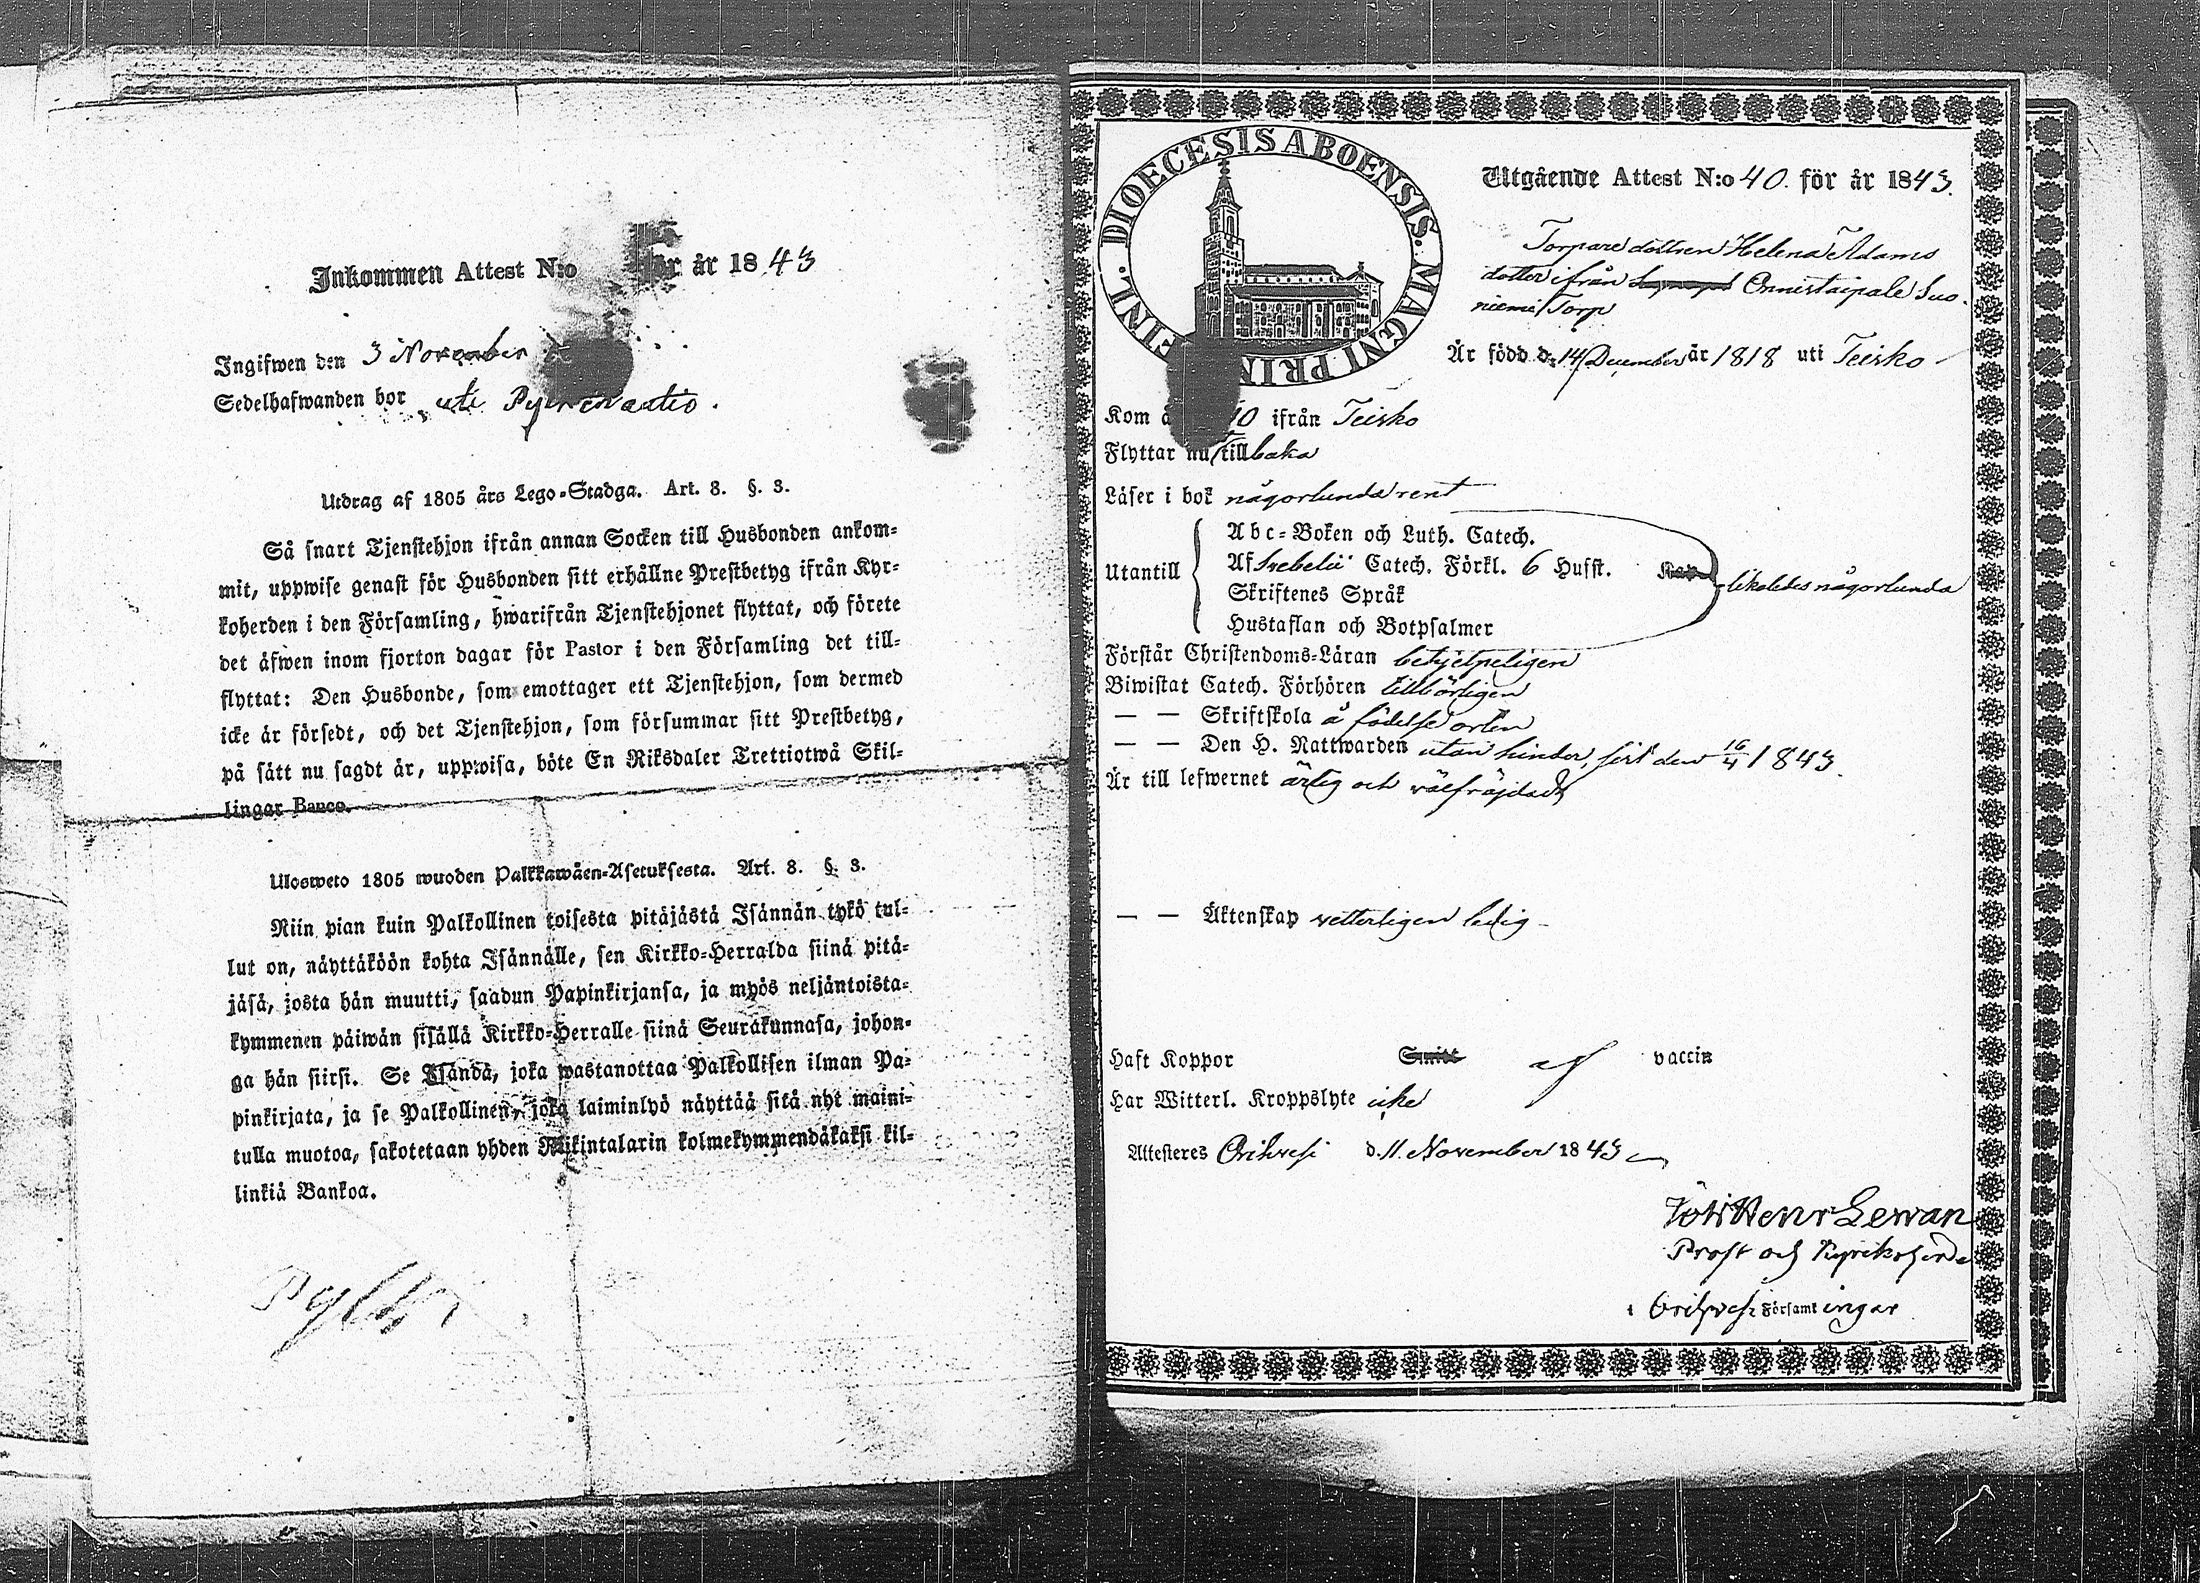 Inkommen Attest N:o för år 1843
Ingifwen den 3 November
Sedelhafwanden bor uti
Utdrag af 1805 års Lego-Stadga. Art. 8. §. 3.
Så snart Tjenstehjon ifrån annan Socken till Husbonden ankom-
mit, uppwise genast för Husbonden sitt erhållne Prestbetyg ifrån Kyr-
koherden i den Församling, hwarifrån Tjenstehjonet flyttat, och förete
det äfwen inom fjorton dagar för Pastor i den Församling det till-
flyttat: Den Husbonde, som emottager ett Tjenstehjon, som dermed
icke är försedt, och det Tjenstehjon, som försummar sitt Prestbetyg,
på sätt nu sagdt är, uppwisa, böte En Riksdaler Trettiotwå Skil-
lingar Banco.
Ulosweto 1805 wuoden Palkkawäen-Asetuksesta. Art. 8. §. 3.
Niin pian kuin Palkollinen toisesta pitäjästä Isännän tykö tul-
lut on, näyttäköön kohta Isännälle, sen Kirkko-Herralda siinä pitä-
jäsä, josta hän muutti, saadun Papinkirjansa, ja myös neljäntoista-
kymmenen päiwän sisällä Kirkko-Herralle siinä Seurakunnasa, johon-
ga hän siirsi. Se Isändä, joka wastanottaa Palkollisen ilman Pa-
pinkirjata, ja se Palkollinen, joka laiminlyö näyttää sitä nyt maini-
tulla muotoa, sakotetaan yhden Riikintalarin kolmekymmendäkaksi kil-
linkiä Bankoa.
FINL. DIOECESIS ABOENSIS. MAGNI PRIN
Utgående Attest N:o 40. för år 1843.
Torpare dottren Helena Adams
dotter ifrån Onnistaipale Suo-
niemi Torp
Är född d. 14 December år 1818 uti Teisko
Kom å 40 ifrån Teisko
Flyttar nu tillbaka
Läser i bok någorlunda rent
Utantill
Abc-Boken och Luth. Catech.
Af Svebelii Catech. Förkl. 6 Hufst. Kap
Skriftenes Språk
Hustaflan och Botpsalmer
likaledes någorlunda
Förstår Christendoms-Läran behjelpeligen
Biwistat Catech. Förhören tillbörligen
— — Skriftskola å födelse orten
— — Den H. Nattwarden utan hinder, sist den 16/4 1843.
Är till lefwernet ärlig och välfräjdad
— — Äktenskap vetterligen ledig
Haft Koppor Smitt af vaccin
Har Witterl. Kroppslyte icke
Attesteres Orihvesi d. 11. November 1843
Joh Henr Lewan
Prost och Kyrkoherde
i Orihvesi Församlingar